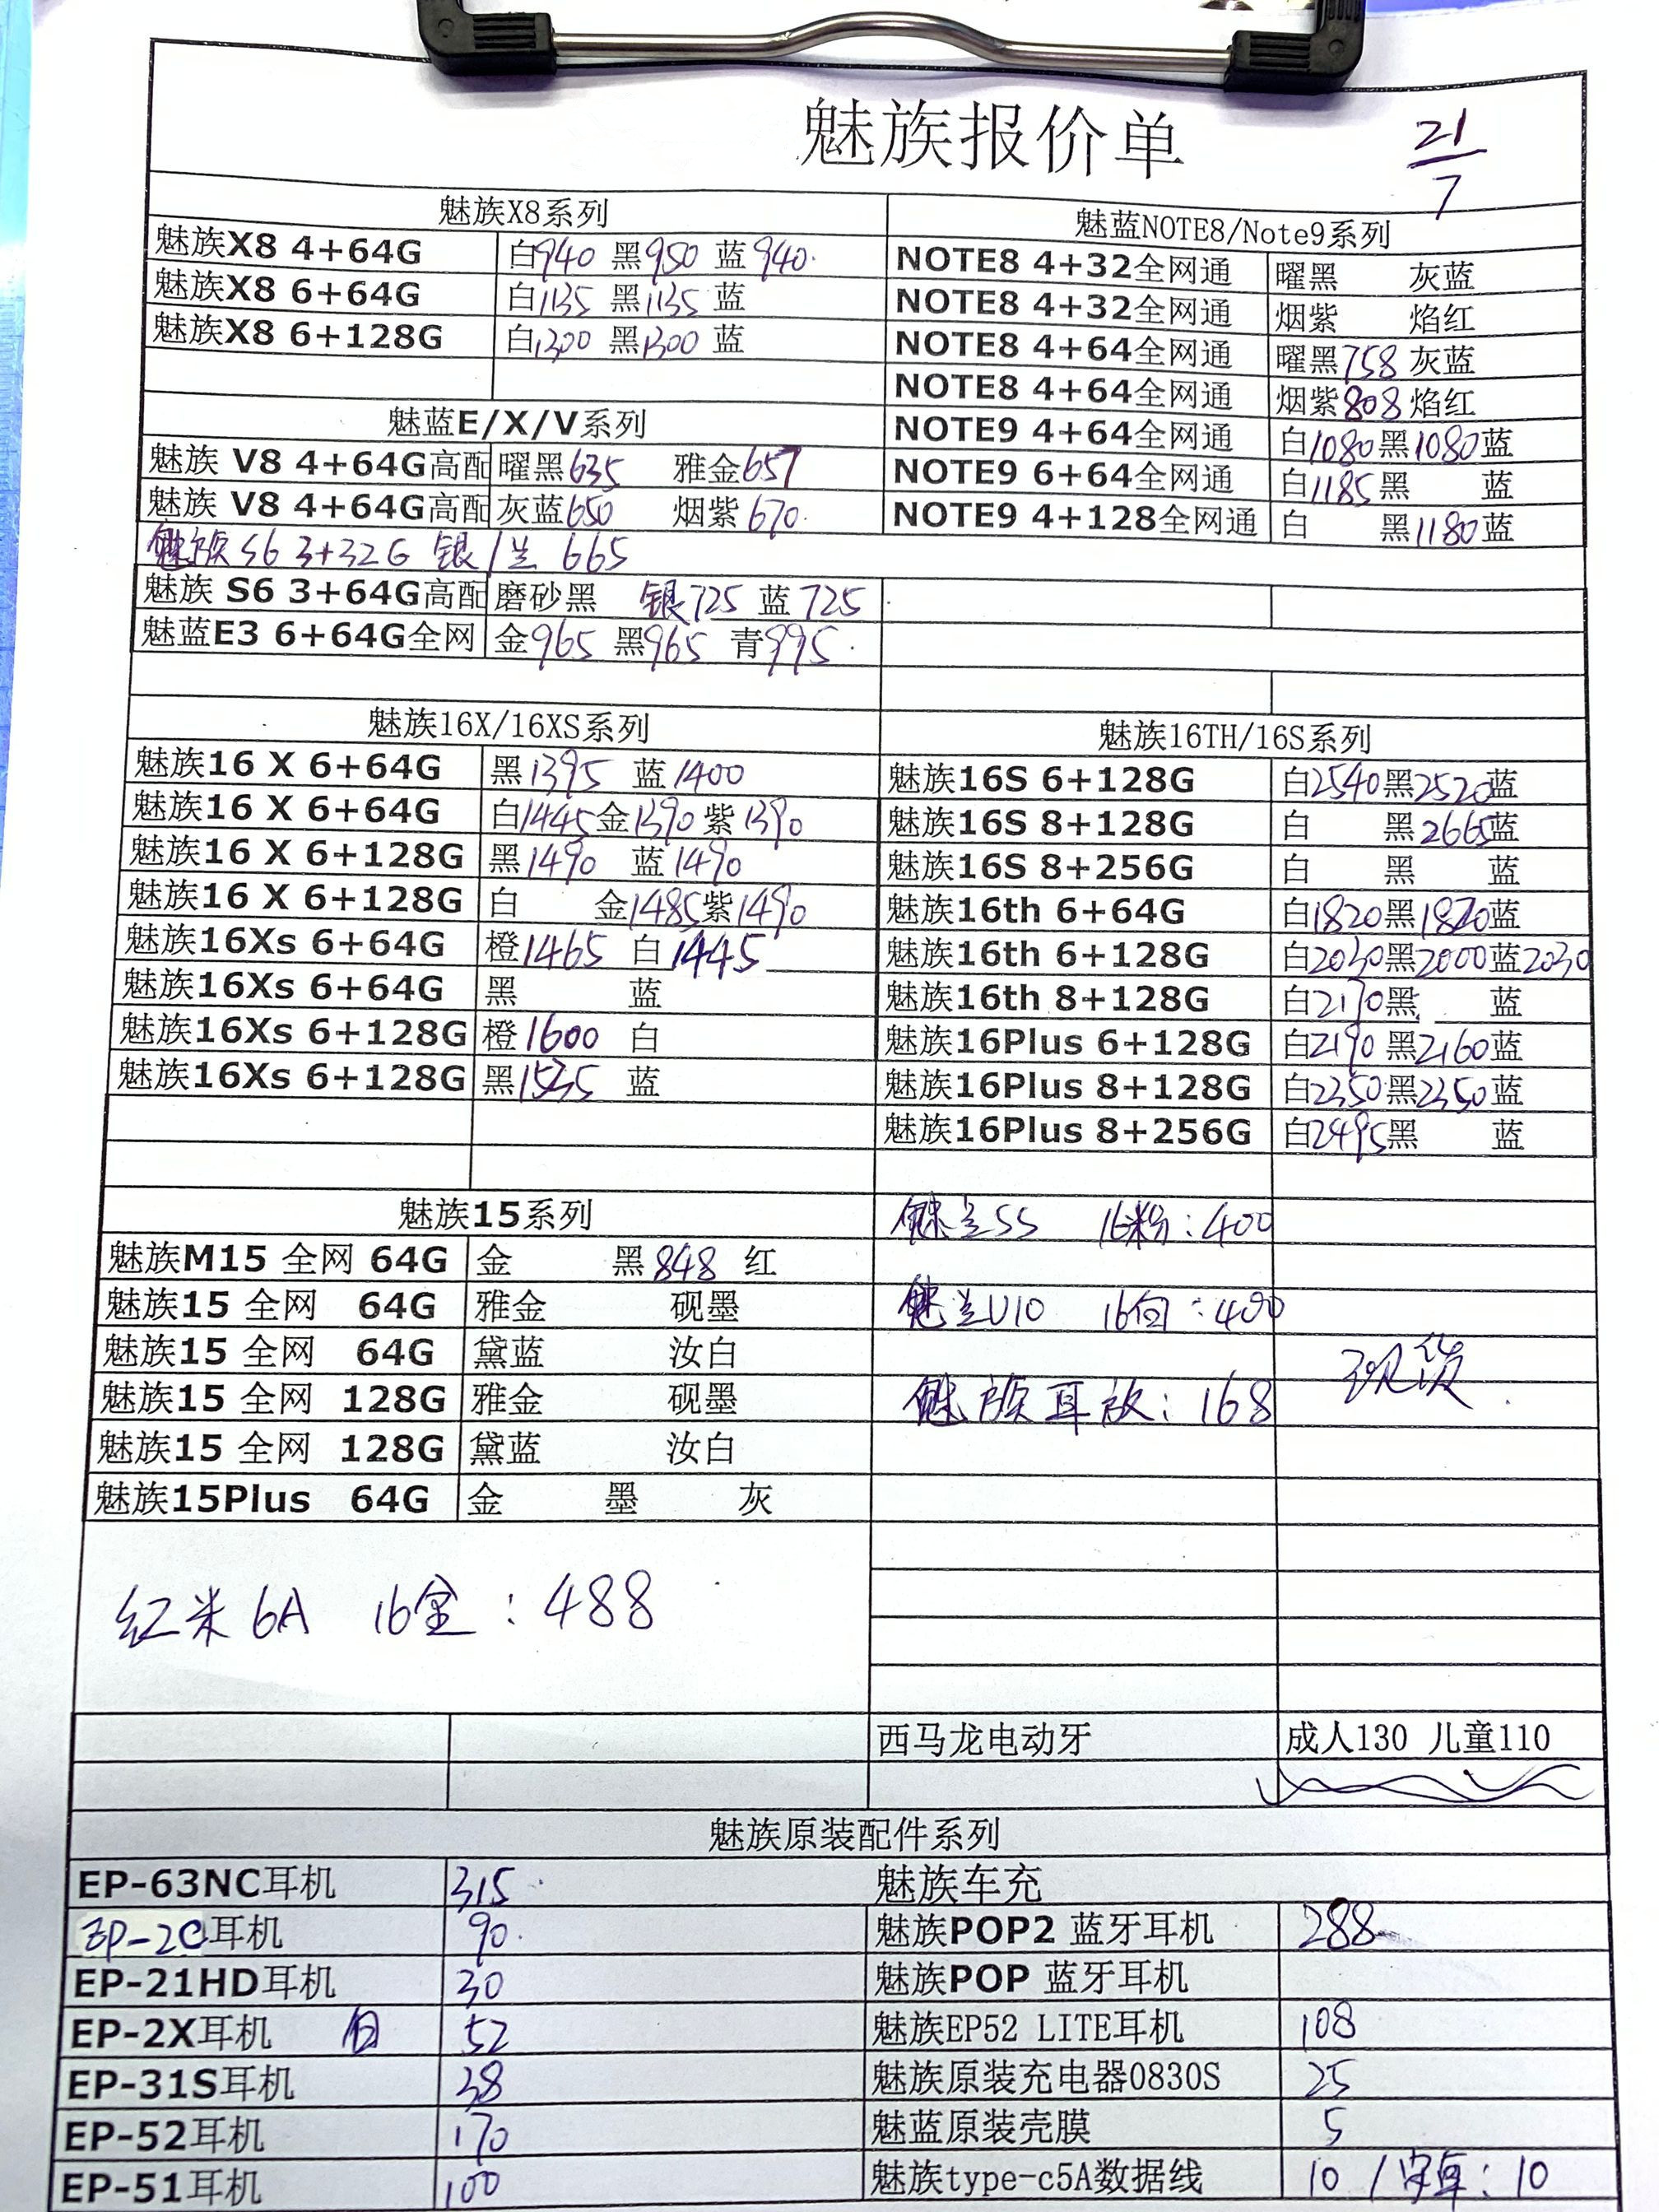 魅族报价单
21/7
魅族X8系列
魅族X8 4+64G 白940 黑950 蓝940
魅族X8 6+64G 白1135 黑1135 蓝
魅族X8 6+128G 白1300 黑1300 蓝
魅蓝E/X/V系列
魅族 V8 4+64G高配 曜黑635 雅金657
魅族 V8 4+64G高配 灰蓝650 烟紫670
魅族S6 3+32G 银/兰 665
魅族 S6 3+64G高配 磨砂黑 银725 蓝725
魅蓝E3 6+64G全网 金965 黑965 青995
魅蓝NOTE8/Note9系列
NOTE8 4+32全网通 曜黑 灰蓝
NOTE8 4+32全网通 烟紫 焰红
NOTE8 4+64全网通 曜黑758 灰蓝
NOTE8 4+64全网通 烟紫808 焰红
NOTE9 4+64全网通 白1080 黑1080 蓝
NOTE9 6+64全网通 白1185 黑 蓝
NOTE9 4+128全网通 白 黑1180 蓝
魅族16X/16XS系列
魅族16 X 6+64G 黑1395 蓝1400
魅族16 X 6+64G 白1445 金1390 紫1390
魅族16 X 6+128G 黑1490 蓝1490
魅族16 X 6+128G 白 金1485 紫1490
魅族16Xs 6+64G 橙1465 白1445
魅族16Xs 6+64G 黑 蓝
魅族16Xs 6+128G 橙1600 白
魅族16Xs 6+128G 黑1535 蓝
魅族16TH/16S系列
魅族16S 6+128G 白2540 黑2520 蓝
魅族16S 8+128G 白 黑2665 蓝
魅族16S 8+256G 白 黑 蓝
魅族16th 6+64G 白1820 黑1820 蓝
魅族16th 6+128G 白2030 黑2000 蓝2030
魅族16th 8+128G 白2170 黑 蓝
魅族16Plus 6+128G 白2190 黑2160 蓝
魅族16Plus 8+128G 白2350 黑2350 蓝
魅族16Plus 8+256G 白2495 黑 蓝
魅族15系列
魅族M15 全网 64G 金 黑848 红
魅族15 全网 64G 雅金 砚墨
魅族15 全网 64G 黛蓝 汝白
魅族15 全网 128G 雅金 砚墨
魅族15 全网 128G 黛蓝 汝白
魅族15Plus 64G 金 墨 灰
魅兰S5 16粉：400
魅兰U10 16白：400
魅族耳放：168
现货
红米6A 16金：488
西马龙电动牙 成人130 儿童110
魅族原装配件系列
EP-63NC耳机 315 魅族车充
EP-2C耳机 90 魅族POP2 蓝牙耳机 288
EP-21HD耳机 30 魅族POP 蓝牙耳机
EP-2X耳机 白 52 魅族EP52 LITE耳机 108
EP-31S耳机 38 魅族原装充电器0830S 25
EP-52耳机 170 魅蓝原装壳膜 5
EP-51耳机 100 魅族type-c5A数据线 10 /安卓：10